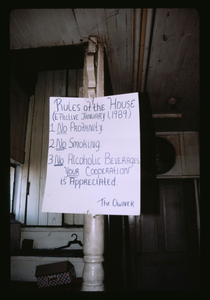 Rules of the House
(Effective January 1, 1989)
1 No Profanity
2 No Smoking
3 No Alcoholic Beverages
Your Cooperation
is Appreciated.
The Owner